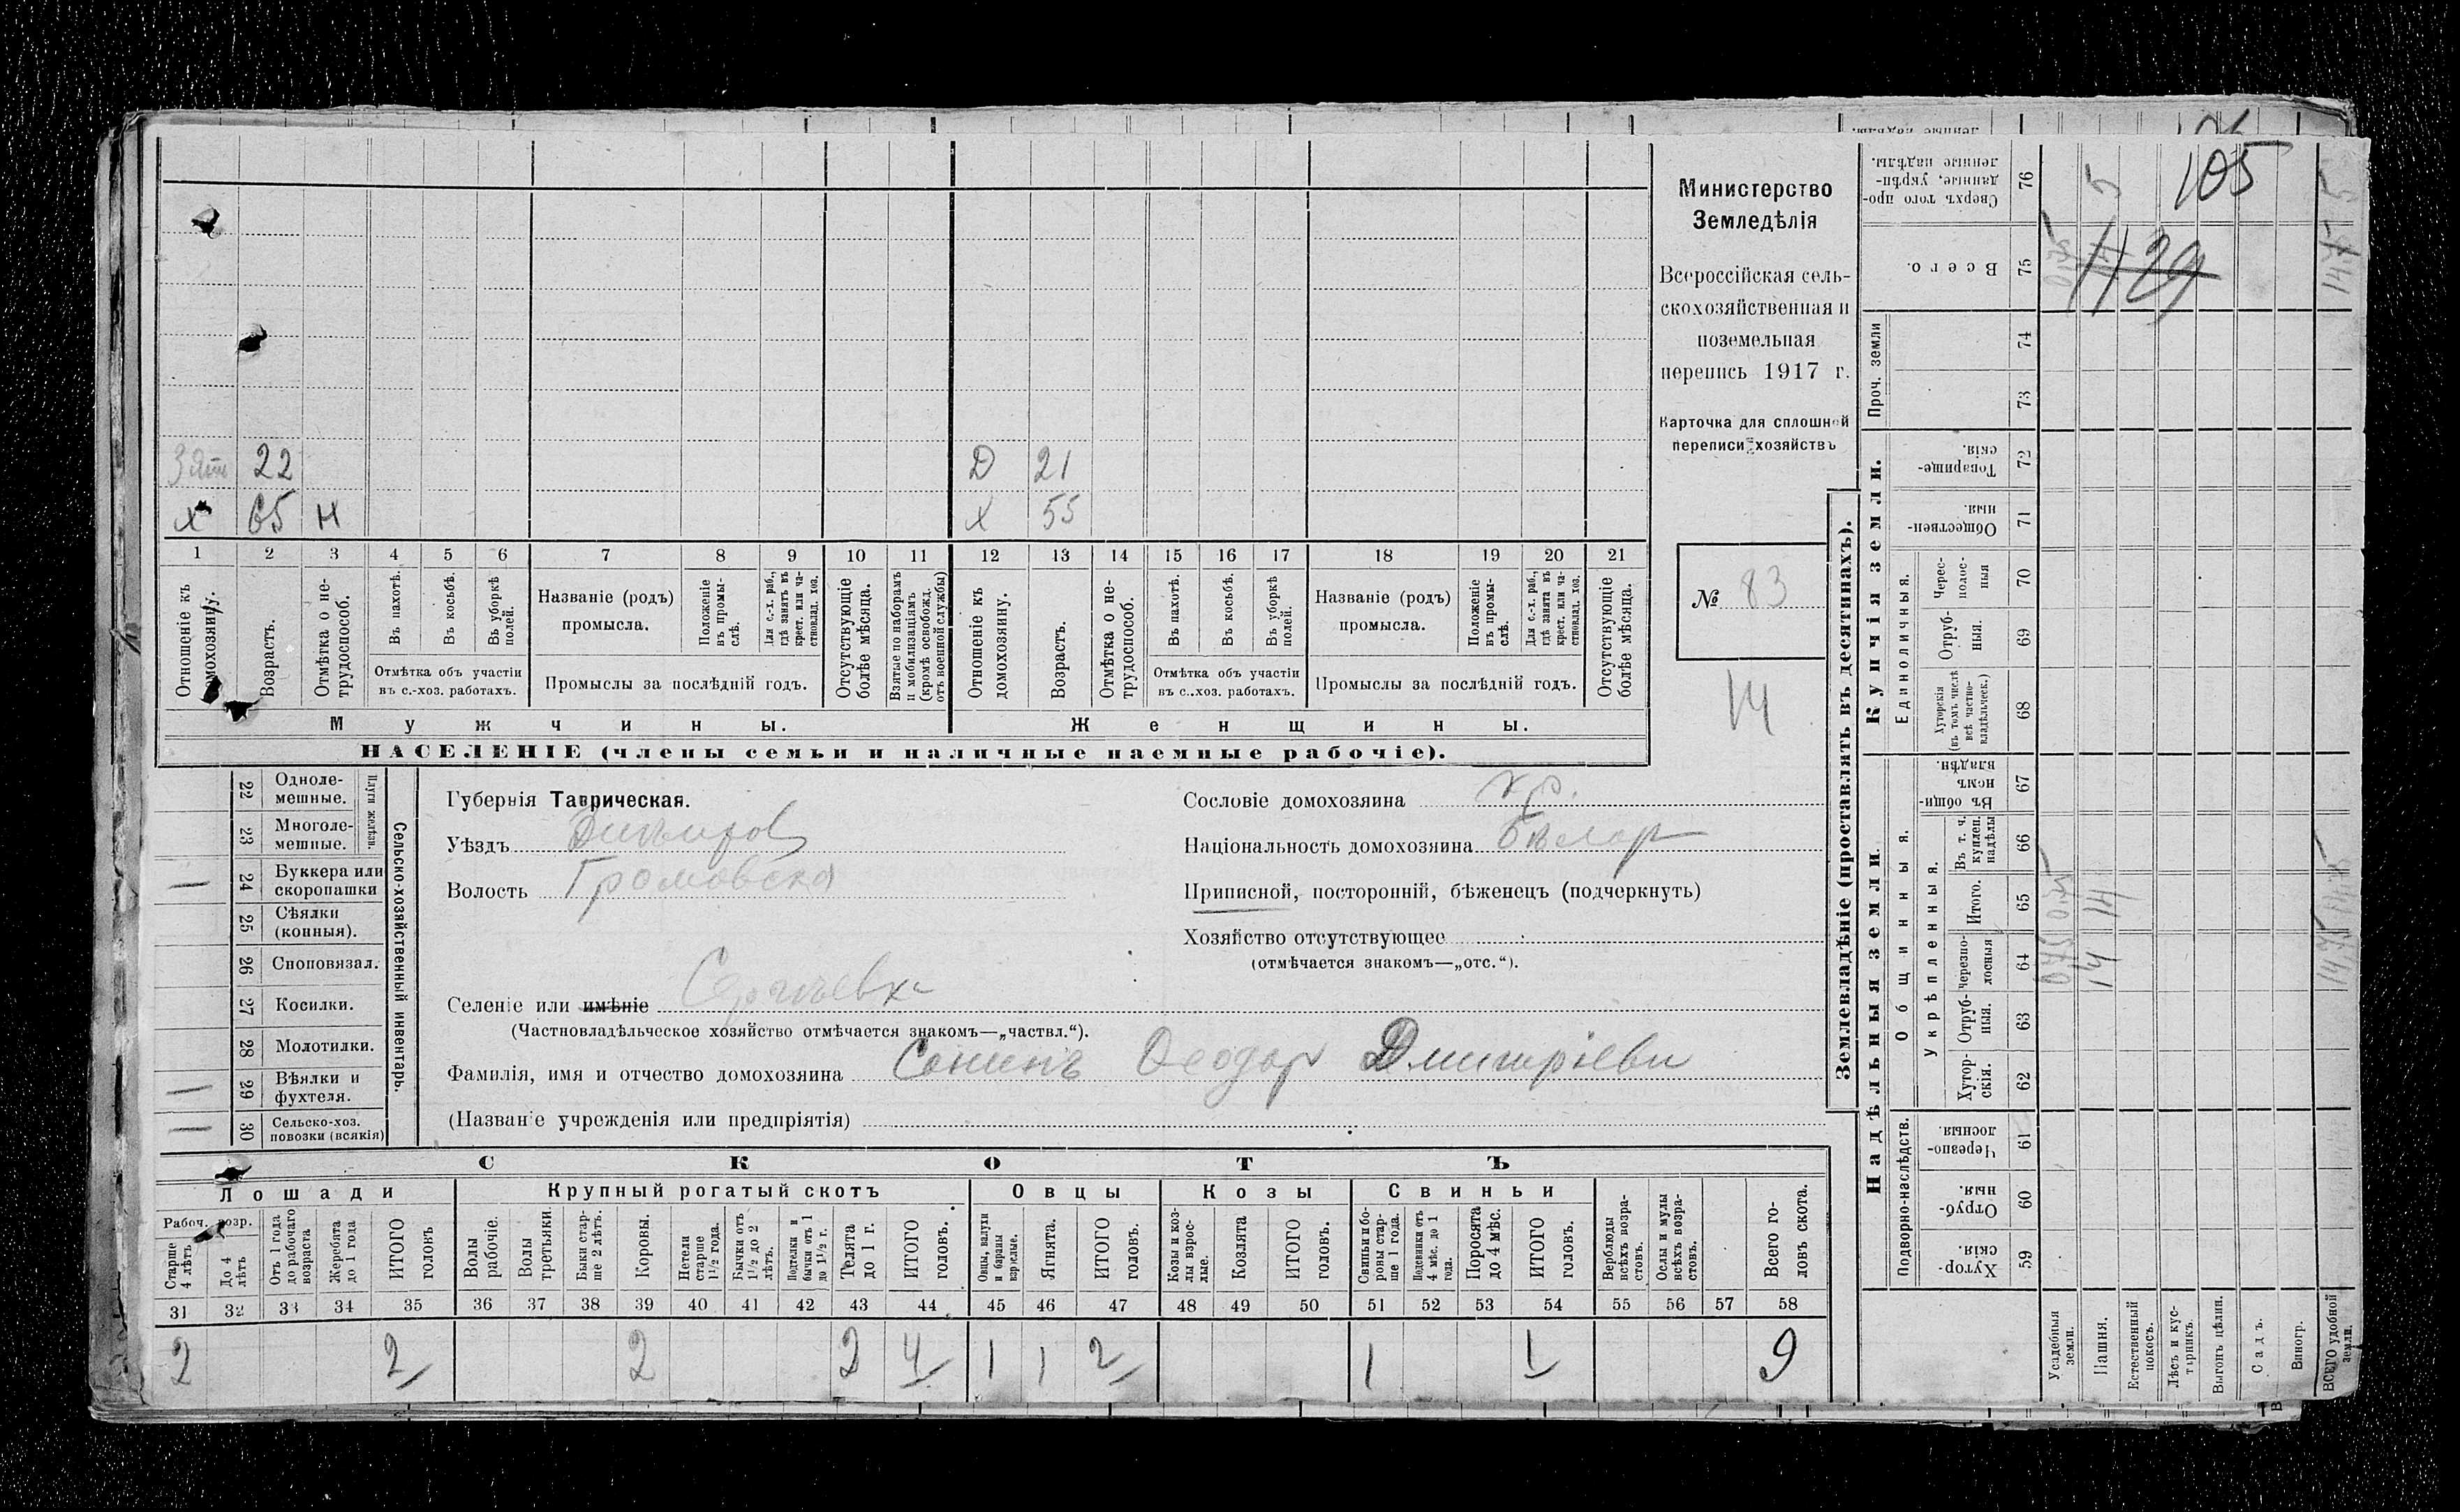 Министерство
Земледѣлія
Всероссійская сель-
скохозяйственная и
поземельная
перепись 1917 г.
Карточка для сплошной
переписи хозяйствъ
№ 83
14
105
1129
Зять 22 Д 21
х 65 Н х 55
1 2 3 4 5 6 7 8 9 10 11 12 13 14 15 16 17 18 19 20 21
Отношеніе къ домохозяину.
Возрастъ.
Отмѣтка о не-трудоспособ.
Въ пахотѣ.
Въ косьбѣ.
Въ уборкѣ полей.
Отмѣтка объ участіи въ с.-хоз. работахъ.
Названіе (родъ) промысла.
Положеніе въ промы-слѣ.
Для с.-х. раб., гдѣ занятъ въ крест. или ча-стновлад. хоз.
Промыслы за послѣдній годъ.
Отсутствующіе болѣе мѣсяца.
Взятые по наборамъ и мобилизаціямъ (кромѣ освобожд. отъ военной службы)
Отношеніе къ домохозяину.
Возрастъ.
Отмѣтка о не-трудоспособ.
Въ пахотѣ.
Въ косьбѣ.
Въ уборкѣ полей.
Отмѣтка объ участіи въ с..хоз. работахъ.
Названіе (родъ) промысла.
Положеніе въ промы-слѣ.
Для с.-х. раб., гдѣ занята въ крест. или ча-стновлад. хоз.
Промыслы за послѣдній годъ.
Отсутствующіе болѣе мѣсяца.
Мужчины. Женщины.
НАСЕЛЕНІЕ (члены семьи и наличные наемные рабочіе).
Сельско-хозяйственный инвентарь.
Плуги желѣзн.
22 Одноле-мешные.
23 Многоле-мешные.
— 24 Буккера или скоропашки
25 Сѣялки (конныя).
26 Споповязал.
27 Косилки.
28 Молотилки.
— 29 Вѣялки и фухтеля.
— 30 Сельско-хоз. повозки (всякія)
Губернія Таврическая.
Уѣздъ
Волость Громовска
Селеніе или имѣніе Сергѣевка
(Частновладѣльческое хозяйство отмѣчается знакомъ—„частвл.“).
Фамилія, имя и отчество домохозяина Сенинъ Феодор Дмитріеви
(Названіе учрежденія или предпріятія)
Сословіе домохозяина кр.
Національность домохозяина
Приписной, посторонній, бѣженецъ (подчеркнуть)
Хозяйство отсутствующее
(отмѣчается знакомъ—„отс.“).
СКОТЪ
Лошади Крупный рогатый скотъ Овцы Козы Свиньи
Рабоч. возр.
Старше 4 лѣтъ
До 4 лѣтъ
Отъ 1 года до рабочаго возраста
Жеребята до 1 года
ИТОГО головъ
Волы рабочіе.
Волы третьяки.
Быки стар-ше 2 лѣтъ.
Коровы.
Нетели старше 1½ года.
Бычки отъ 1½ до 2 лѣтъ.
Подтелки и бычки отъ 1 до 1½ г.
Телята до 1 г.
ИТОГО головъ.
Овцы, валухи и бараны взрослые.
Ягнята.
ИТОГО головъ.
Козы и коз-лы взрос-лые.
Козлята
ИТОГО головъ.
Свиньи и бо-ровы стар-ше 1 года.
Подсвинки отъ 4 мѣс. до 1 года.
Поросята до 4 мѣс.
ИТОГО головъ.
Верблюды всѣхъ возра-стовъ.
Ослы и мулы всѣхъ возра-стовъ.
Всего го-ловъ скота.
31 32 33 34 35 36 37 38 39 40 41 42 43 44 45 46 47 48 49 50 51 52 53 54 55 56 57 58
2 2 2 2 4 1 1 2 1 1 9
Землевладѣніе (проставлять въ десятинахъ).
Купчія земли.
Надѣльныя земли.
Сверхъ того про-данные, укрѣп-ленные надѣлы. 76 5 5
Всего. 75 0,75 14 14,75
Проч. земли 74
73
Товарище-скія. 72
Обществен-ныя. 71
Единоличныя.
Черес-полос-ныя 70
Отруб-ныя. 69
Хуторскія (въ томъ числѣ всѣ частно-владѣльческ.) 68
Общинныя.
Въ общи-номъ владѣн. 67
Укрѣпленныя.
Въ т. ч. куплен. надѣлы 66
Итого. 65 0,75 14 14,75
Черезпо-лосныя 64 0,75 14 14,75
Отруб-ныя. 63
Хутор-скія. 62
Подворно-наслѣдств.
Черезпо-лосныя. 61
Отруб-ныя. 60
Хутор-скія. 59
Усадебныя земли.
Пашня.
Естественный покосъ.
Лѣсъ и кус-тарникъ.
Выгонъ цѣлин.
Садъ.
Виногр.
ВСЕГО удобной земли.